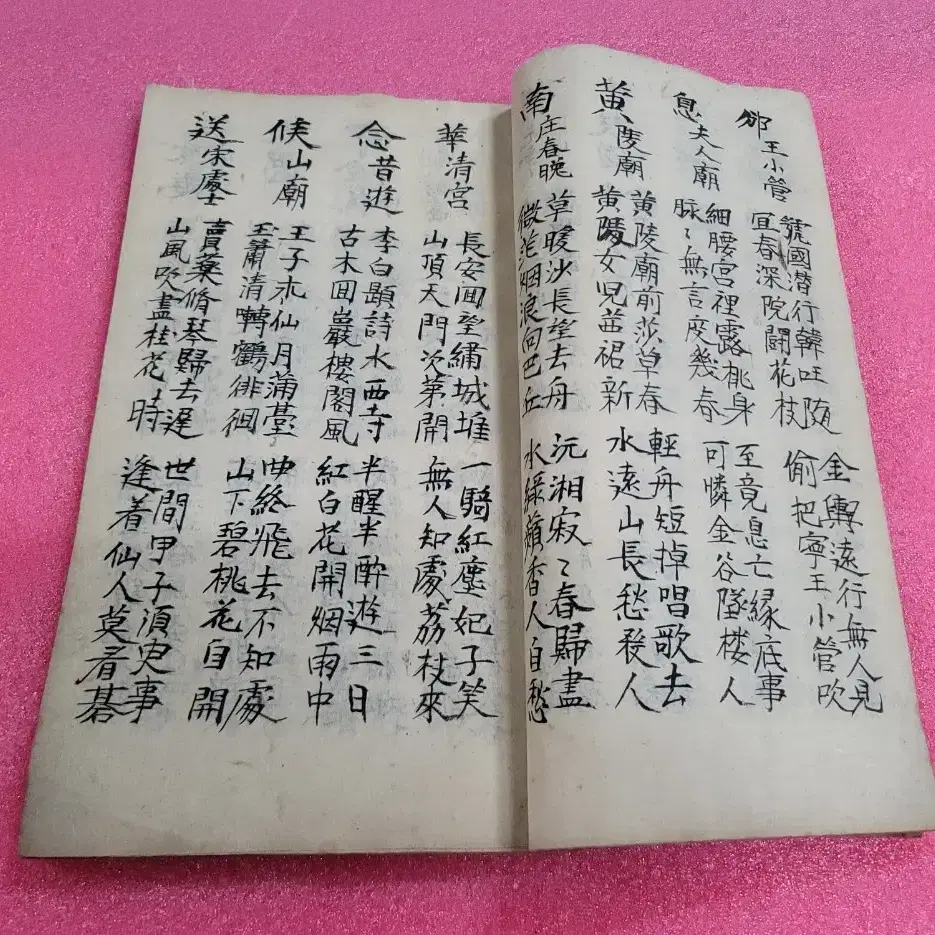 邠王小管
虢國潛行韓旺隨
宜春深院鬪花枝
金輿遠行無人見
偷把寧王小管吹
息夫人廟
細腰宮裡露桃身
脉〻無言度幾春
至竟息亡緣底事
可憐金谷墜樓人
黃陵廟
黃陵廟前莎草春
黃陵女児茜裙新
輕舟短掉唱歌去
水遠山長愁殺人
南庄春晚
草暖沙長望去舟
微茫烟浪向巴丘
沅湘寂〻春歸盡
水綠蘋香人自愁
華清宮
長安回望繡城堆
山頂天門次第開
一騎紅塵妃子笑
無人知處荔枝來
念昔遊
李白題詩水西寺
古木回巖樓閣風
半醒半酔遊三日
紅白花開烟雨中
候山廟
王子求仙月滿臺
玉簫清囀鶴徘徊
曲終飛去不知處
山下碧桃花自開
送宋處士
賣藥脩琴歸去遲
山風吹盡桂花時
世間甲子須臾事
逢着仙人莫看碁